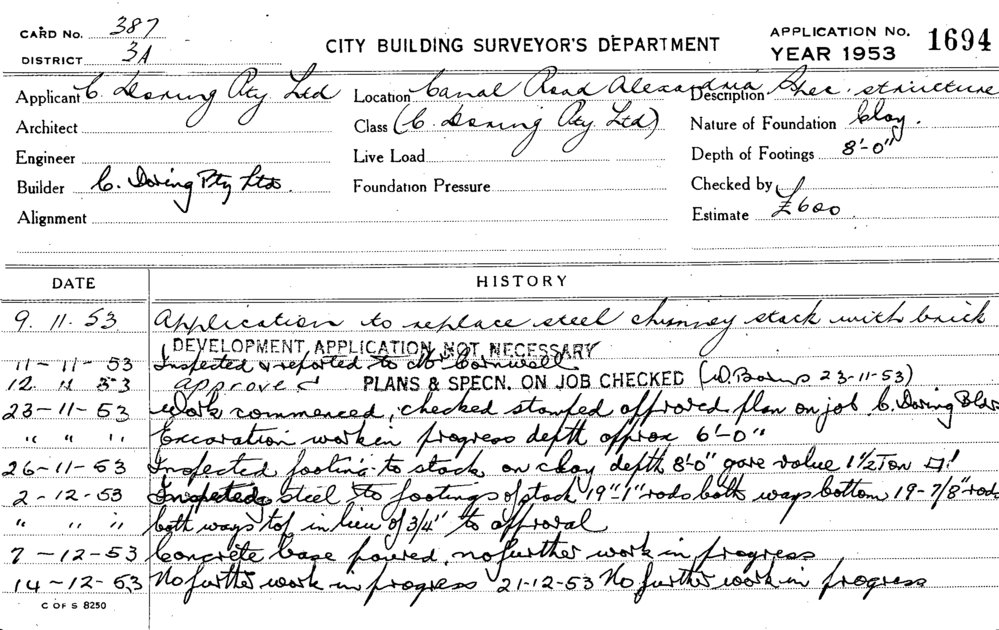 CARD No. 387
DISTRICT 3A
CITY BUILDING SURVEYOR'S DEPARTMENT
APPLICATION No. 1694
YEAR 1953
Applicant C. Doring Pty Ltd
Location Canal Road Alexandria
Description Spec. structure
Architect
Class (C. Doring Pty Ltd)
Nature of Foundation Clay.
Engineer
Live Load
Depth of Footings 8'-0"
Builder C. Doring Pty Ltd.
Foundation Pressure
Checked by
Alignment
Estimate £600
DATE HISTORY
9. 11. 53 Application to replace steel chimney stack with brick
DEVELOPMENT APPLICATION NOT NECESSARY
11-11-53 Inspected & reported to Mr Cornwall
12 11 53 approved PLANS & SPECN. ON JOB CHECKED (W. 23-11-53)
23-11-53 Work commenced, checked stamped approved plan on job C. Doring Bldr
" " " Excavation work in progress depth approx 6'-0"
26-11-53 Inspected footing to stack on clay depth 8'-0" gave value 1½ Ton □'
2-12-53 Inspected steel to footings of stack 19"-1" rods both ways bottom 19-7/8" rods
" " " both ways top in lieu of 3/4" to approval
7-12-53 Concrete base poured. no further work in progress
14-12-53 No further work in progress 21-12-53 No further work in progress
C OF S 8250